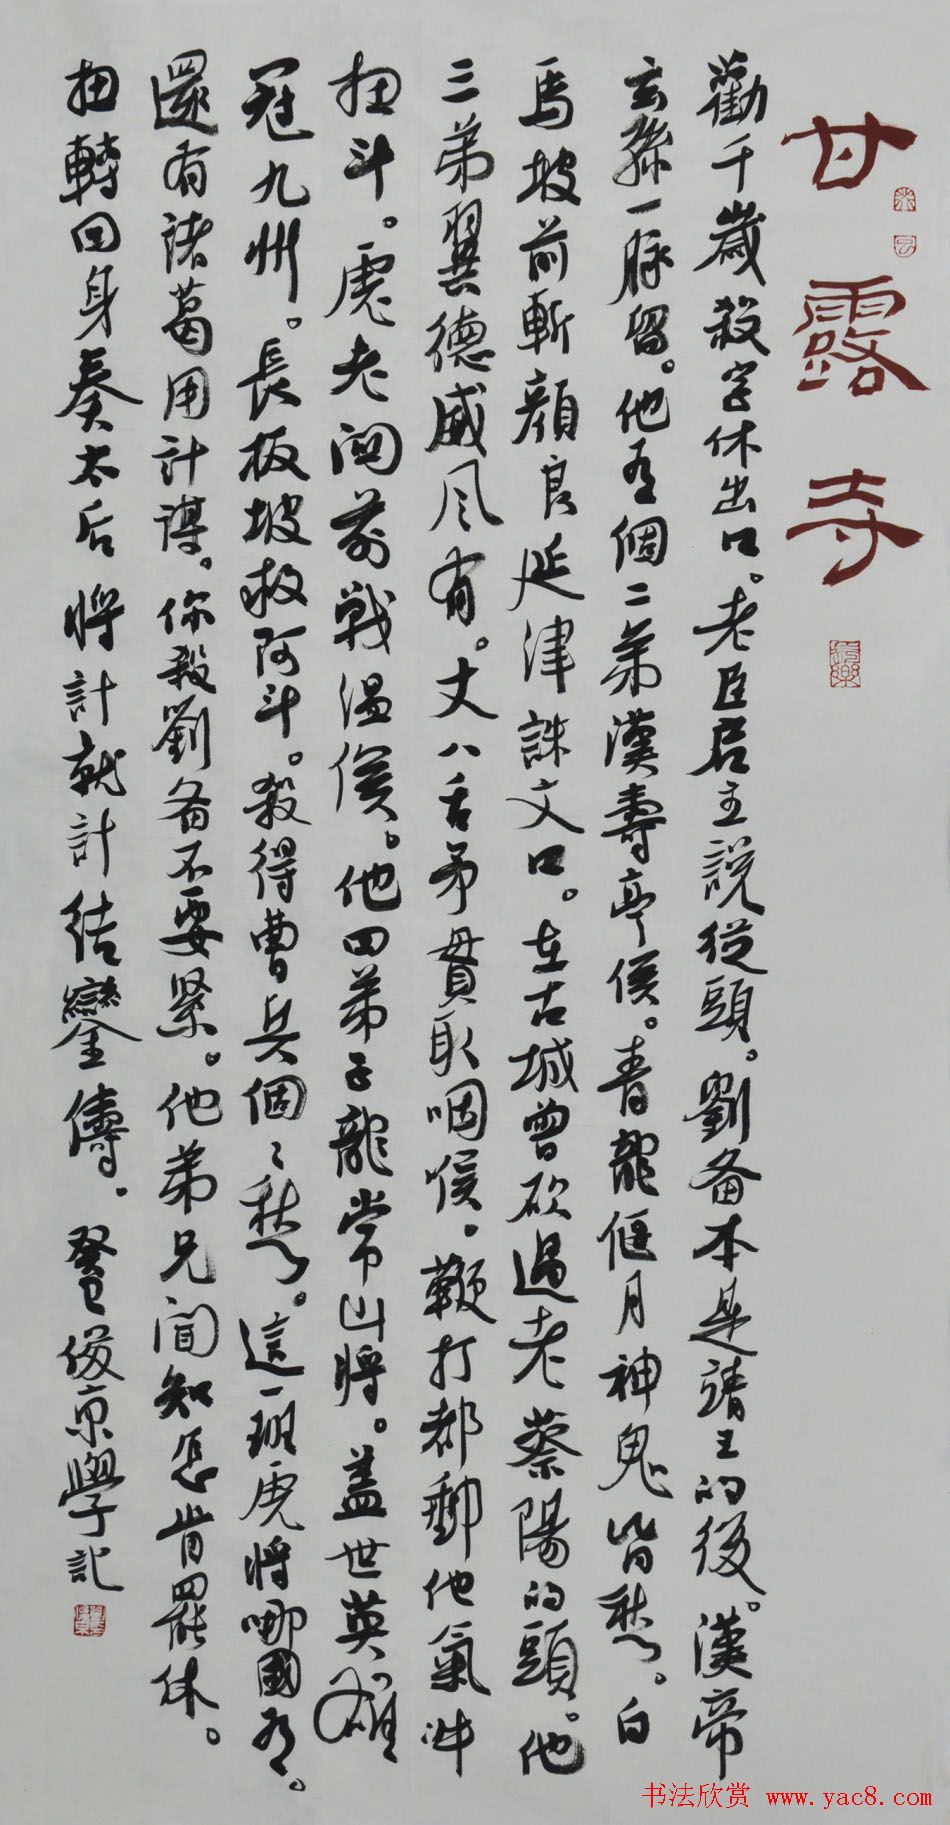 甘露寺
勸千歲殺字休出口。老臣启主說從頭。劉备本是靖王的後。漢帝
玄孫一脉留。他有個二弟漢壽亭侯。青龍偃月神鬼皆愁。白
馬坡前斬顔良延津誅文口。在古城曾砍過老蔡陽的頭。他
三弟翼德威风有。丈八舌矛貫取咽喉。鞭打都郵他氣冲
扭斗。虎老関前戰温侯。他四弟子龍常山將。盖世英雄
冠九州。長板坡救阿斗。殺得曹兵個〻愁。這一班虎將哪國有。
還有諸葛用計謀。你殺劉备不要緊。他弟兄聞知怎肯罷休。
扭轉回身奏太后將計就計結鑾儔。俊京學記
书法欣赏 www.yac8.com